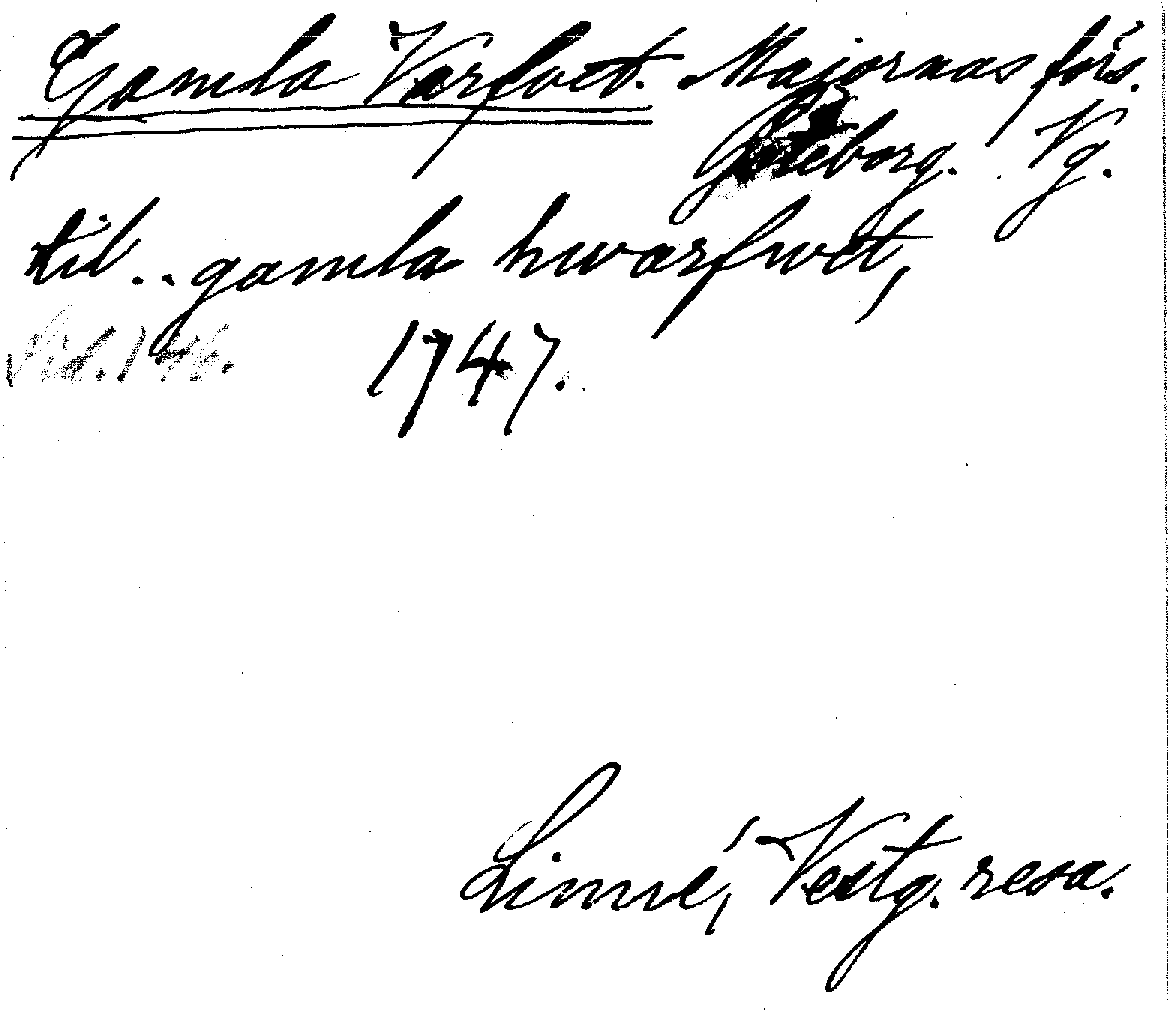 Gamla Varfvet. Majornas förs.
Göteborg. Vg.
til .. gamla hwarfwet,
Sid. 146. 1747.
Linné, Vestg. resa.